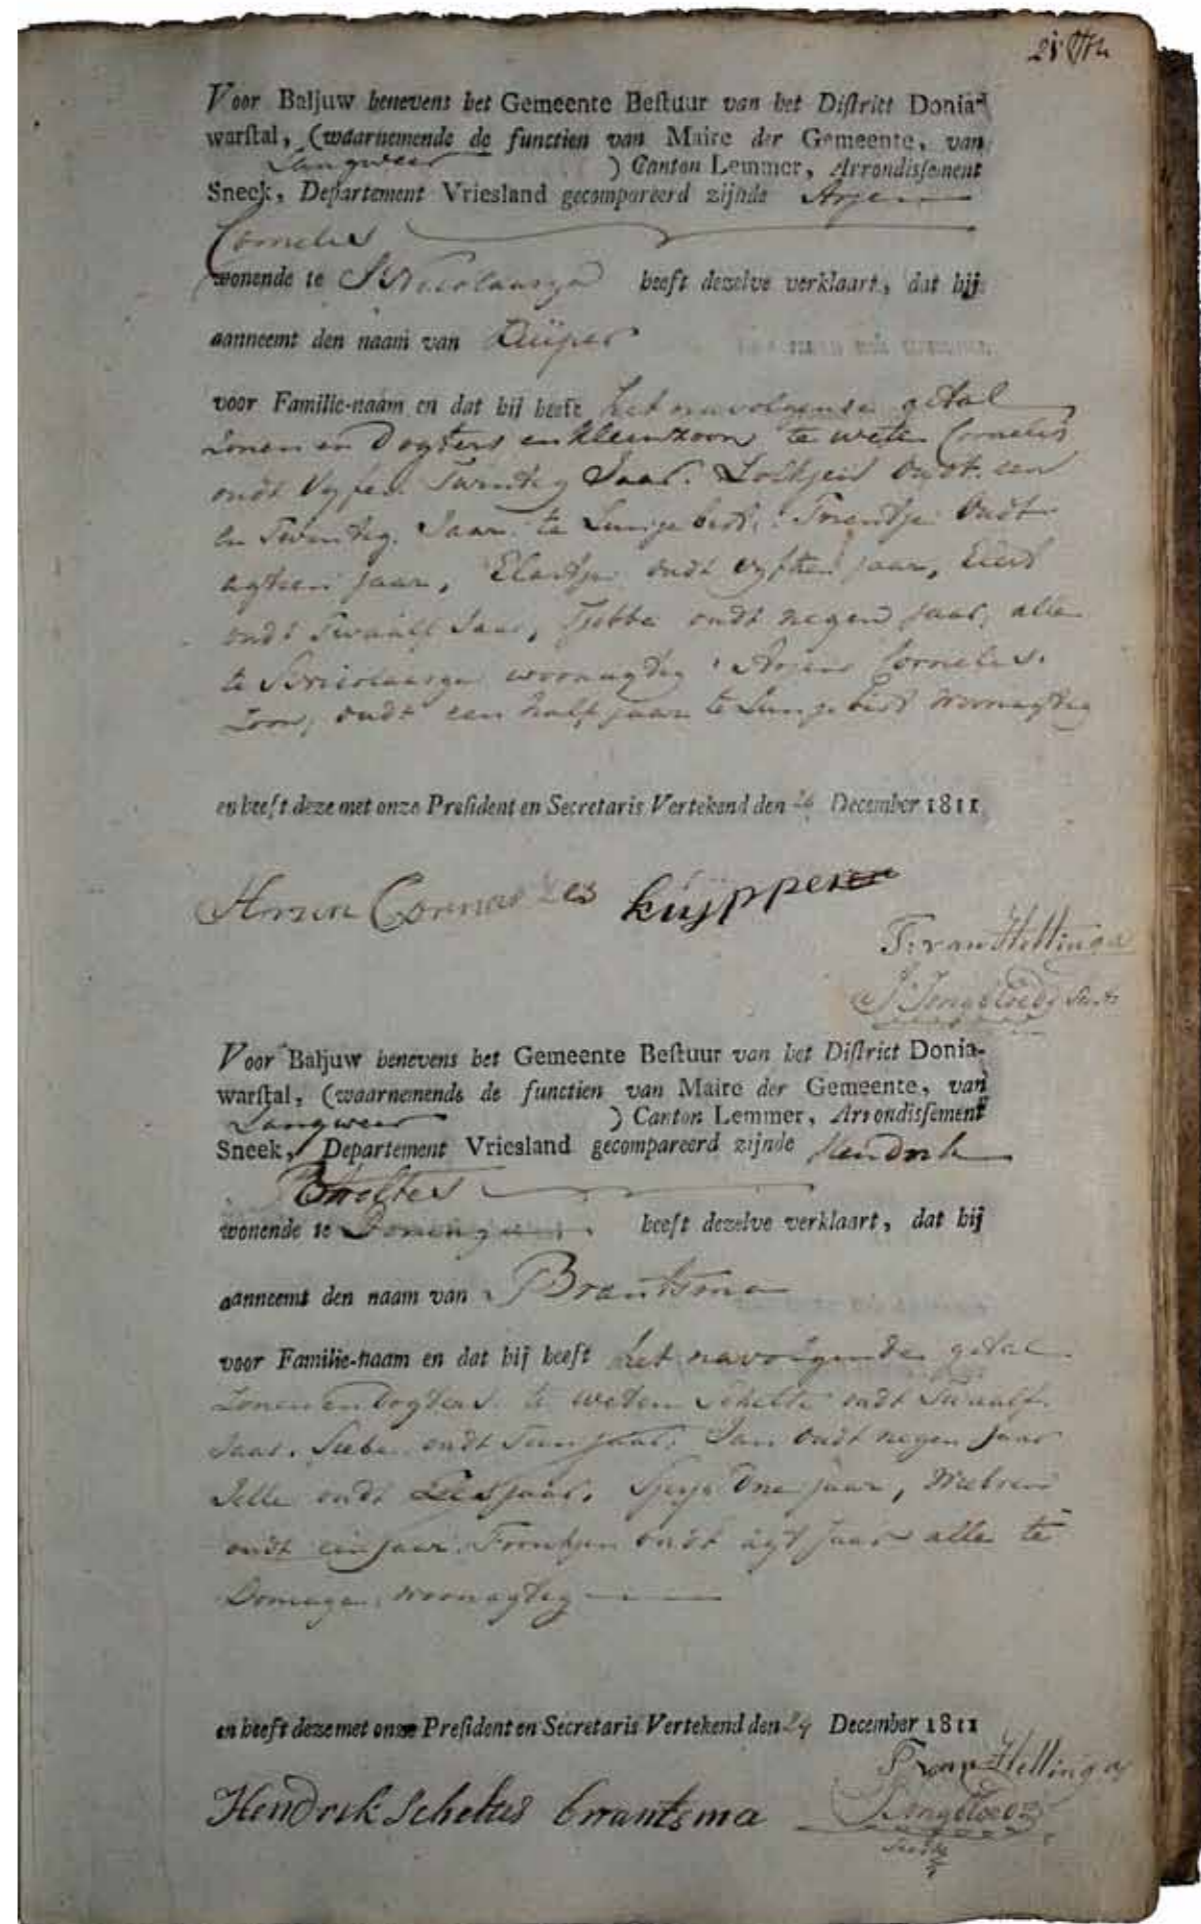 Voor Baljuw benevens het Gemeente Bestuur van het District Donia-
warstal, (waarnemende de functien van Maire der Gemeente, van
Langweer ) Canton Lemmer, Arrondissement
Sneek, Departement Vriesland gecompareerd zijnde Arjen
Cornelis
wonende te St Nicolaasga heeft dezelve verklaart, dat hij
aanneemt den naam van Kuiper
voor Familie-naam en dat hij heeft het navolgende getal
Zonen en Dogters en kleinzoon te weten Cornelis
oudt Vyf en Twintig Jaar. oudt een
en Twintig Jaar te Trientje Oudt
agtien jaar, oudt vyftien jaar,
oudt Twaalf Jaar, Tjebbe oudt negen jaar, alle
te St Nicolaasga woonagtig Arjen Cornelis
Zoon, oudt een half jaar te woonagtig
en heeft deze met onze President en Secretaris Vertekend den December 1811
kuijpper
T: van Hellinga
Voor Baljuw benevens het Gemeente Bestuur van het District Donia-
warstal, (waarnemende de functien van Maire der Gemeente, van
Langweer ) Canton Lemmer, Arrondissement
Sneek, Departement Vriesland gecompareerd zijnde Hendrik
Scheltes
wonende te heeft dezelve verklaart, dat hij
aanneemt den naam van Brantsma
voor Familie-naam en dat hij heeft het navolgende getal
Zonen en Dogters te weten Schelte oudt Twaalf
Jaar. oudt Jaar, Jan oudt negen Jaar
Jelle oudt jaar, Drie jaar, Wiebren
oudt een jaar oudt agt Jaar alle te
woonagtig
en heeft deze met onze President en Secretaris Vertekend den December 1811
T van Hellinga
Hendrik Scheltes brantsma